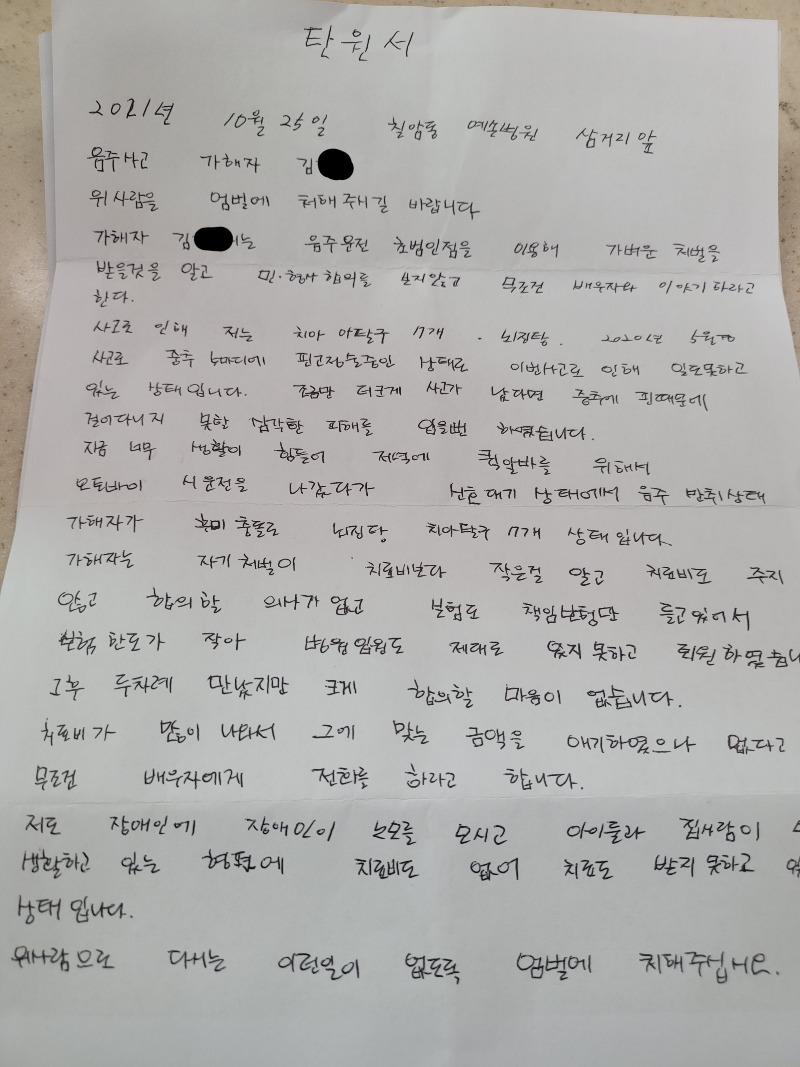 탄원서
2021년 10월 25일 칠암동 예손병원 삼거리앞
음주사고 가해자 김
위사람을 엄벌에 처해주시길 바랍니다
가해자 김 는 음주운전 초범인점을 이용해 가벼운 처벌을
받을것을 알고 민·형사 합의를 보지않고 무조건 배우자와 이야기 하라고
한다.
사고로 인해 저는 치아 아탈구 17개 . 뇌진탕. 2020년 5월
사고로 중추 마디에 핀고정술중인 상태로 이번사고로 인해 일도못하고
있는 상태입니다. 조금만 더크게 사고가 났다면 중추에 핀때문에
걸어다니지 못할 심각한 피해를 입을뻔 하였습니다.
지금 너무 생활이 힘들어 저녁에 퀵알바를 위해서
오토바이 시운전을 나갔다가 신호대기 상태에서 음주 만취상태
가해자가 후미 충돌로 뇌진탕 치아탈구 17개 상태입니다.
가해자는 자기 처벌이 치료비보다 작은걸 알고 치료비도 주지
않고 합의할 의사가 없고 보험도 책임보험만 들고있어서
보험 한도가 작아 병원입원도 제대로 있지 못하고 퇴원하였습니
그후 두차례 만났지만 크게 합의할 마음이 없습니다.
치료비가 많이 나와서 그에 맞는 금액을 얘기하였으나 없다고
무조건 배우자에게 전화를 하라고 합니다.
저도 장애인에 장애인이 노모를 모시고 아이들과 집사람이
생활하고 있는 형편에 치료비도 없어 치료도 받지 못하고
상태입니다.
위사람으로 다시는 이런일이 없도록 엄벌에 처해주십시요.